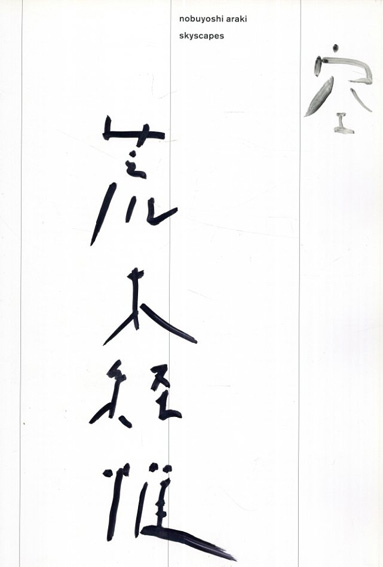 nobuyoshi araki
skyscapes
空
荒木経惟